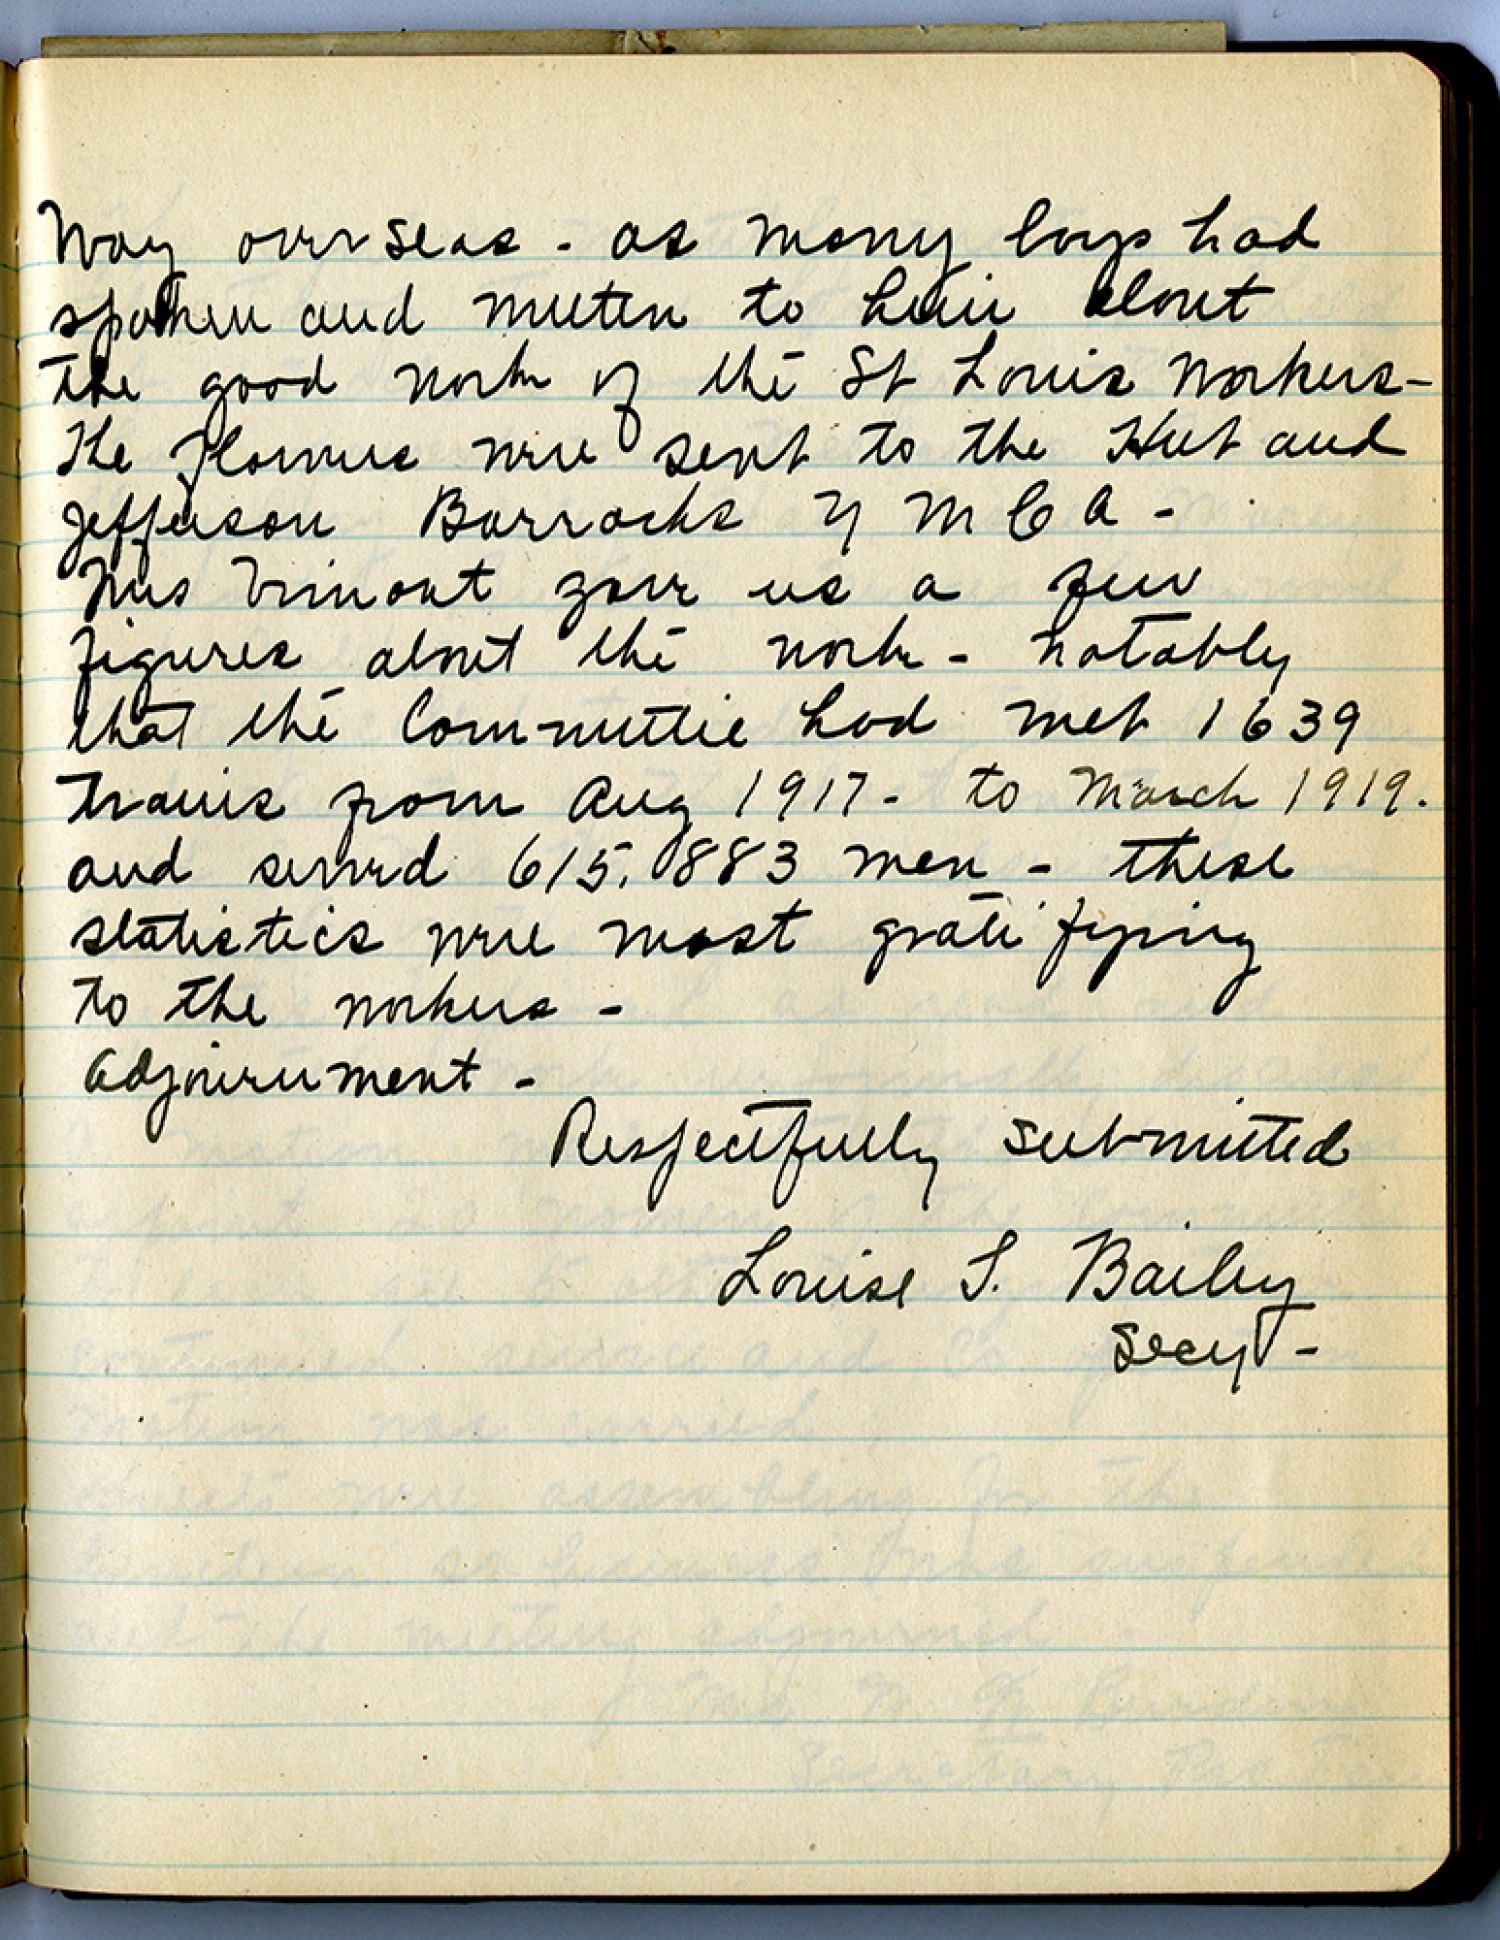 Way overseas - as many boys had
spoken and written to her about
the good work of the St Louis Workers -
The flowers were sent to the Hut and
Jefferson Barracks Y M C A -
Mrs Vimont gave us a few
figures about the work - notably
that the Committee had met 1639
Trains from Aug 1917 - to March 1919.
and served 615,883 men - these
statistics were most gratifying
to the workers -
Adjournment -
Respectfully submitted
Louise S. Bailey
Secy -